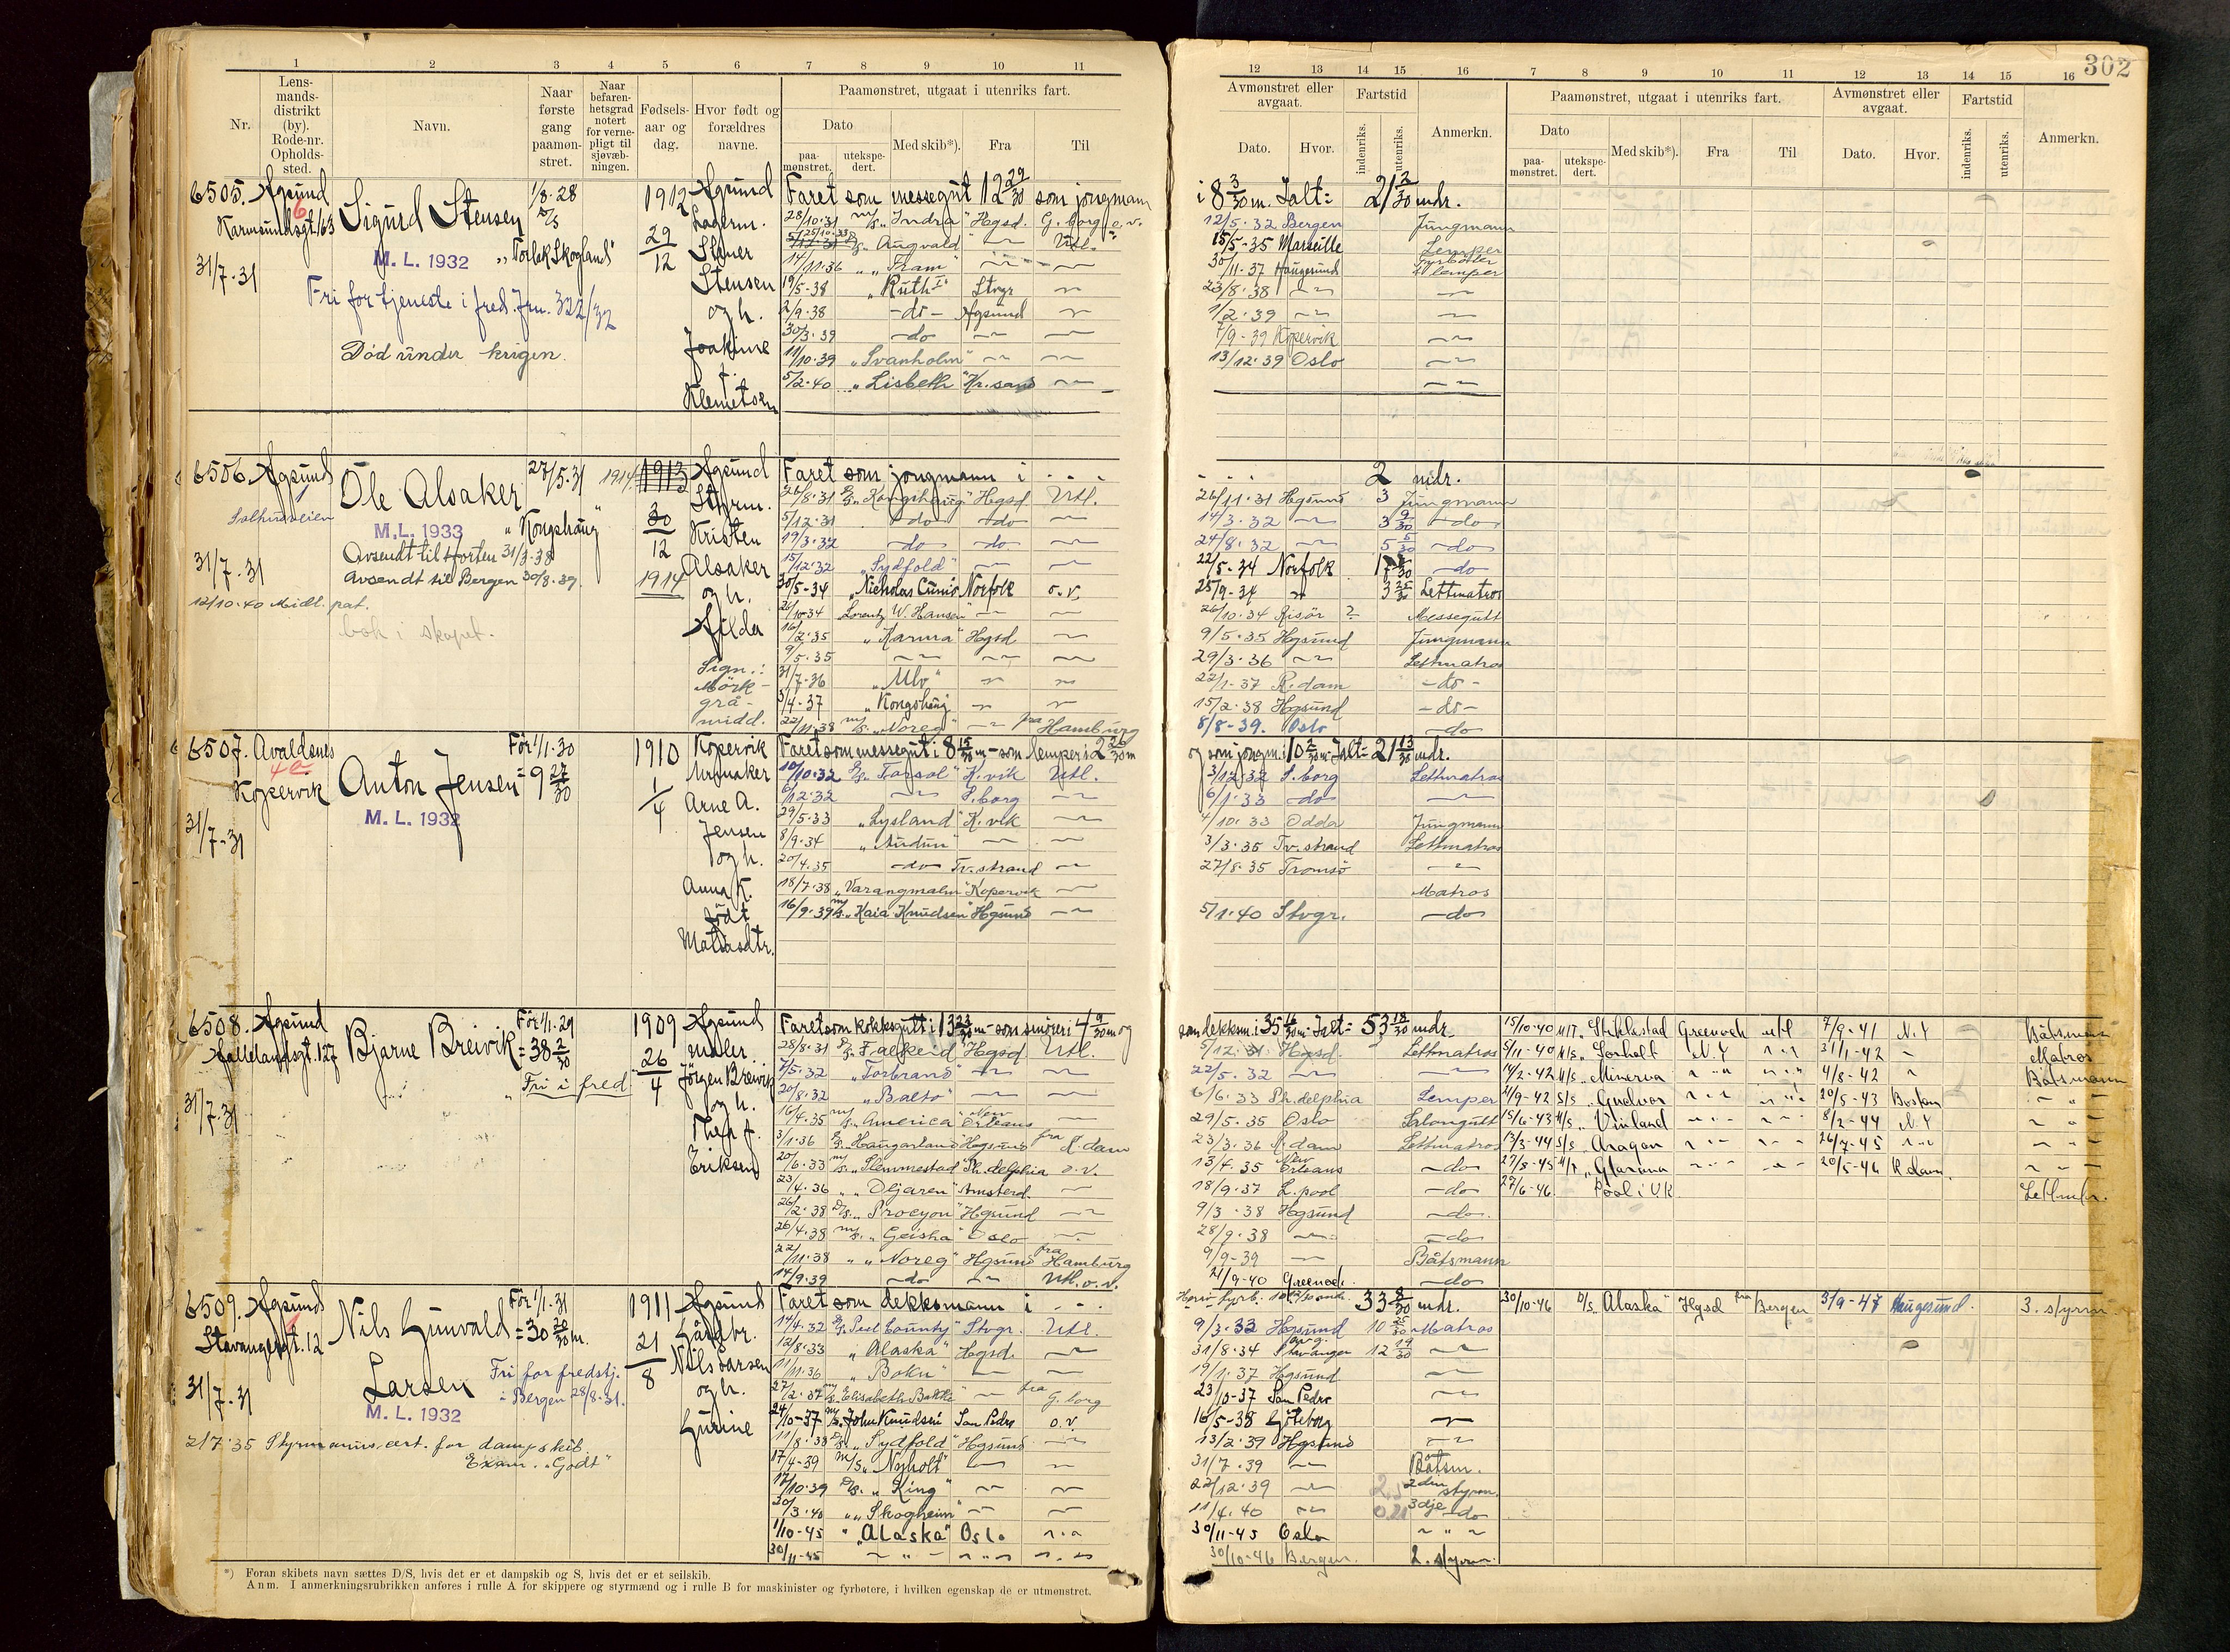 302
1 2 3 4 5 6 7 8 9 10 11
Nr.
Lens-
mands-
distrikt
(by).
Rode-nr.
Opholds-
sted.
Navn.
Naar
første
gang
paamøn-
stret.
Naar
befaren-
hetsgrad
notert
for verne-
pligt til
sjøvæb-
ningen.
Fødsels-
aar og
dag.
Hvor født og
forældres
navne.
Paamønstret, utgaat i utenriks fart.
Dato
paa-
mønstret.
utekspe-
dert.
Med skib*).
Fra
Til
12 13 14 15 16 7 8 9 10 11 12 13 14 15 16
Avmønstret eller
avgaat.
Dato.
Hvor.
Fartstid
indenriks.
utenriks.
Anmerkn.
Paamønstret, utgaat i utenriks fart.
Dato
paa-
mønstret.
utekspe-
dert.
Med skib*).
Fra
Til
Avmønstret eller
avgaat.
Dato.
Hvor.
Fartstid
indenriks.
utenriks.
Anmerkn.
6505. Hgsund
6
Karmsundsgt. 163
31/7-31
Sigurd Stensen
1/8-28
D/S
"Torlak Skogland"
M. L. 1932
Fri for tjeneste i fred. Jrn. 322/32
Död under krigen.
1912
29/12
Hgsund
Lagerm.
Stensen
og h.
Joakime
f.
Klemetsen
Faret som messegut 12 29/30 som jongmann
i 8 3/30 m. Ialt = 21 2/30 mdr.
28/10-31 M/S "Indra" Hgsd. G.borg o.v. 12/5-32 Bergen Jungmann
"Augvald" Utl. 15/5-35 Marseille Lemper
14/11-36 "Fram" 30/11-37 Haugesund
19/5-38 "Ruth I" Stvgr 23/8-38
2/9-38 -do- Hgsund 1/2-39
30/3-39 -do- 7/9-39 Kopervik
11/10-39 "Svanholm" 13/12-39 Oslo
5/2-40 "Lisbeth" Kr.sand
6506. Hgsund
Salhusveien
31/7-31
Ole Alsaker
27/5-31
"Kongshaug"
M. L. 1933
Avsendt til Horten 31/3-38
Avsendt til Bergen 30/8-39.
12/10-40 Midl. pat.
bok i skapet.
1914
1913
30/12
1914
Hgsund
Styrm.
Kristen
Alsaker
og h.
Hilda
Sign.:
Mörk-
grå-
midd.
Faret som jongmann i - - - 2 mdr.
"Kongshaug" Hgsd Utl. 26/11-31 Hgsund 3 Jungmann
5/12-31 -do- -do- 14/3-32 3 9/30 -do-
19/3-32 -do- -do- 24/8-32 5 5/30 -do-
15/12-32 "Sydfold" 22/5-34 Norfolk -do-
30/5-34 "Nicholas Cuneo" Norfolk o.v. 25/9-34 Lettmatros
Lorentz W. Hansen 26/10-34 Risör ? Messegutt
16/2-35 "Karma" Hgsd. 9/5-35 Hgsund Jungmann
9/5-35 29/3-36 Lettmatros
31/7-36 "Ulv" 22/1-37 R.dam -do-
3/4-37 "Kongshaug" 15/2-38 Hgsund -do-
22/11-38 M/S "Noreg" fra Hamburg 8/8-39. Oslo -do-
6507. Avaldsnes
4a
Kopervik
31/7-31
Anton Jensen
M. L. 1932
För 1/1-30
= 9 27/30
1910
1/4
Kopervik
Urmaker
Arne A.
Jensen
og h.
Anna K.
född
Matiasdtr.
Faret som messegut i 8 15/30 m - som lemper i 2 26/30 m
og som jongm. i 10 2/30 m Ialt = 21 13/30 mdr.
10/10-32 D/S "Torsol" K.vik Utl. 3/12-32 S.borg Lettmatros
6/12-32 S.borg 6/1-33 -do-
29/5-33 "Lysland" K.vik 4/10-33 Odda Jungmann
8/9-34 "Audun" 3/3-35 Tv.strand Lettmatros
20/4-35 -do- Tv.strand 27/8-35 Tromsö
18/7-38 "Varangmalm" Kopervik Matros
16/9-39 M/S "Kaia Knudsen" Hgsund 5/1-40 Stvgr. -do-
6508. Hgsund
Hallelandsgt. 127
31/7-31
Bjarne Breivik
För 1/1-29
= 38 2/30
"Fri i fred
1909
26/4
Hgsund
Maler
Jørgen Breivik
og h.
f.
Eriksen
Faret som kokksgutt i 13 23/30 m - som smörer i 4 9/30 m og
som dekksm. i 35 16/30 m Ialt = 53 18/30 mdr.
28/8-31 D/S "Falkeid" Hgsd. Utl. 5/12-31 Hgsd. Lettmatros
2/5-32 "Torbrand" 22/5-32
20/8-32 "Balto" 6/6-33 Ph.delphia Lemper
16/4-35 M/S "America" New Orleans 29/5-35 Oslo Salongutt
3/1-36 D/S "Haugarland" Hgsund fra R.dam 23/3-36 R.dam Lettmatros
20/6-33 M/S "Slemmestad" Ph.delphia o.v. 13/4-35 New Orleans -do-
23/4-36 "Oljaren" Amsterd. 18/9-37 L.pool -do-
26/2-38 D/S "Procyon" Hgsund 9/3-38 Hgsund -do-
26/4-38 M/S "Geisha" Oslo 28/9-38 -do-
22/11-38 "Noreg" Hgsund fra Hamburg 9/9-39 Båtsmann
14/9-39 -do- Utl. o.v. 21/9-40 Greenock. -do-
15/10-40 M/T "Stiklestad" Greenock utl 7/9-41 N.Y Båtsmann
5/11-40 M/S "Sörholt" N.Y 31/1-42 Matros
14/2-42 M/S "Minerva" 4/8-42 Båtsmann
21/9-42 S/S "Gudvor" 20/5-43 Boston
15/6-43 M/S "Vinland" 8/2-44 N.Y
13/3-44 S/S "Aragon" 26/7-45
27/8-45 M/T "Glarona" 20/5-46 R.dam
27/6-46. Pool i UK. Lettmtr.
6509. Hgsund
1
Stavangergt. 12
31/7-31
Nils Gunvald
Larsen
M. L. 1932
För 1/1-31
= 30 20/30 m.
Fri for fredstj.
i Bergen 28/8-31.
2/7-35 Styrmanns sert. for dampskib.
Exam. "Godt"
1911
21/8
Hgsund
Gårdbr.
Nils Larsen
og h.
Gurine
Faret som dekksmann i - - -
33 mdr.
14/4-32 D/S "Peel County" Stvgr. Utl. 9/3-33 Hgsund 10 25/30 Matros
12/8-33 "Alaska" Hgsd. 31/8-34 Stavanger 12 19/30
11/11-36 "Bokn" 19/1-37 Hgsund
27/2-37 M/S "Elisabeth Bakke" fra G.borg 23/10-37 San Pedro
24/10-37 M/S "John Knudsen" San Pedro o.v. 16/5-38 Göteborg
11/8-38 D/S "Sydfold" Hgsund 13/2-39 Hgsund
17/4-39 M/S "Nyholt" 31/7-39 Båtsm.
17/10-39 D/S "King" 22/12-39 2den styrm.
30/3-40 "Skogheim" 11/4-40 3dje -do-
1/10-45 "Alaska" Oslo 30/11-45 Oslo
30/11-45 30/10-46 Bergen. 2. styrm.
30/10-46 D/S "Alaska" Hgsd fra Bergen 3/9-47 Haugesund. 3. styrm.
*) Foran skibets navn sættes D/S, hvis det er et dampskib og S, hvis det er et seilskib.
Anm. I anmerkningsrubrikken anføres i rulle A for skippere og styrmænd og i rulle B for maskinister og fyrbøtere, i hvilken egenskap de er utmønstret.